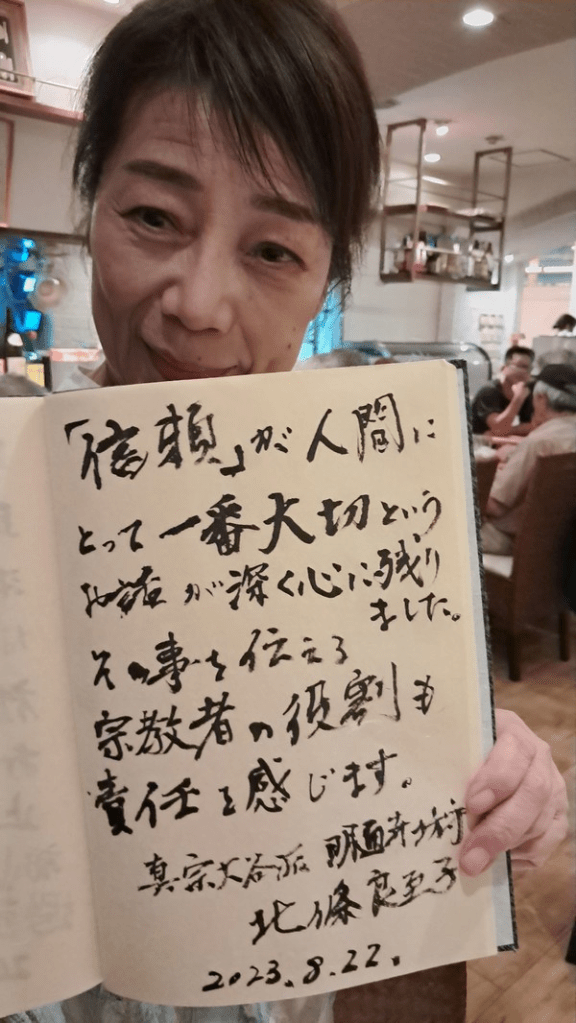 「信頼」が人間に
とって一番大切という
お話が深く心に残り
ました。
その事を伝える
宗教者の役割も
責任を感じます。
真宗大谷派 坊守
北條良至子
2023.8.22.